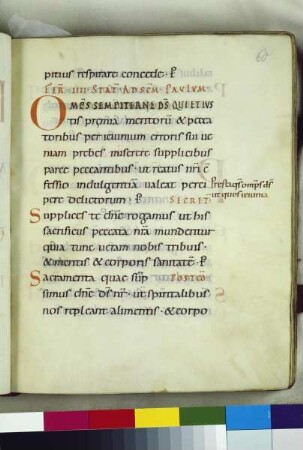 60
pitius respirare concede. P
FER IIII STAT AD SCM PAVLVM.
OMPS SEMPITERNE DS QUI ET IVS
tis premia meritorū & pecca
toribus per ieiunium erroris sui ue
niam prebes miserere supplicibus
parce peccantibus. ut reatus nrī c̄
fessio indulgentiā ualeat perci
pere delictorum. P SECRET
Supplices te dn̄e rogamus ut his
sacrificiis peccata nrā mundentur
quia tunc ueram nobis tribuis.
& mentis & corporis sanitatē. P
Sacramenta quae sūp POSTCO
simus dn̄e ds nr̄. ut spiritalibus
nos repleant alimentis. & corpo
Presta qs omps ds
ut quos ieiunia